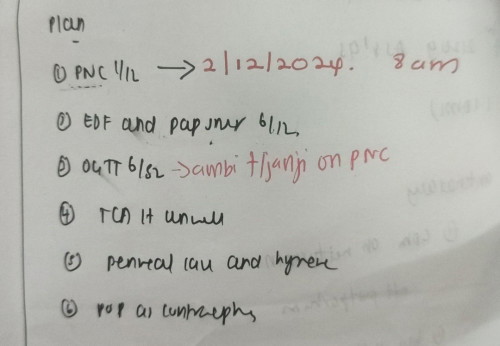 Plan
① PNC 1/12 → 2/12/2024. 8am
② EDF and pap smer 6/12,
③ OGTT 6/52 → ambi t/janji on PNC
④ TCA if unwell
⑤ perineal care and hygiene
⑥ POP as contracep,